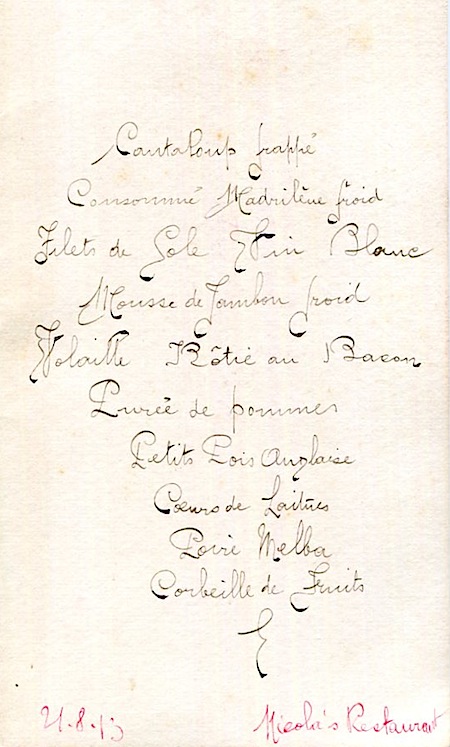 Cantaloup frappé
Consommé Madrilène froid
Filets de Sole Vin Blanc
Mousse de Jambon froid
Volaille Rôtie au Bacon
Purée de pommes
Petits Pois Anglaise
Cœurs de Laitues
Poire Melba
Corbeille de Fruits
Nicola's Restaurant